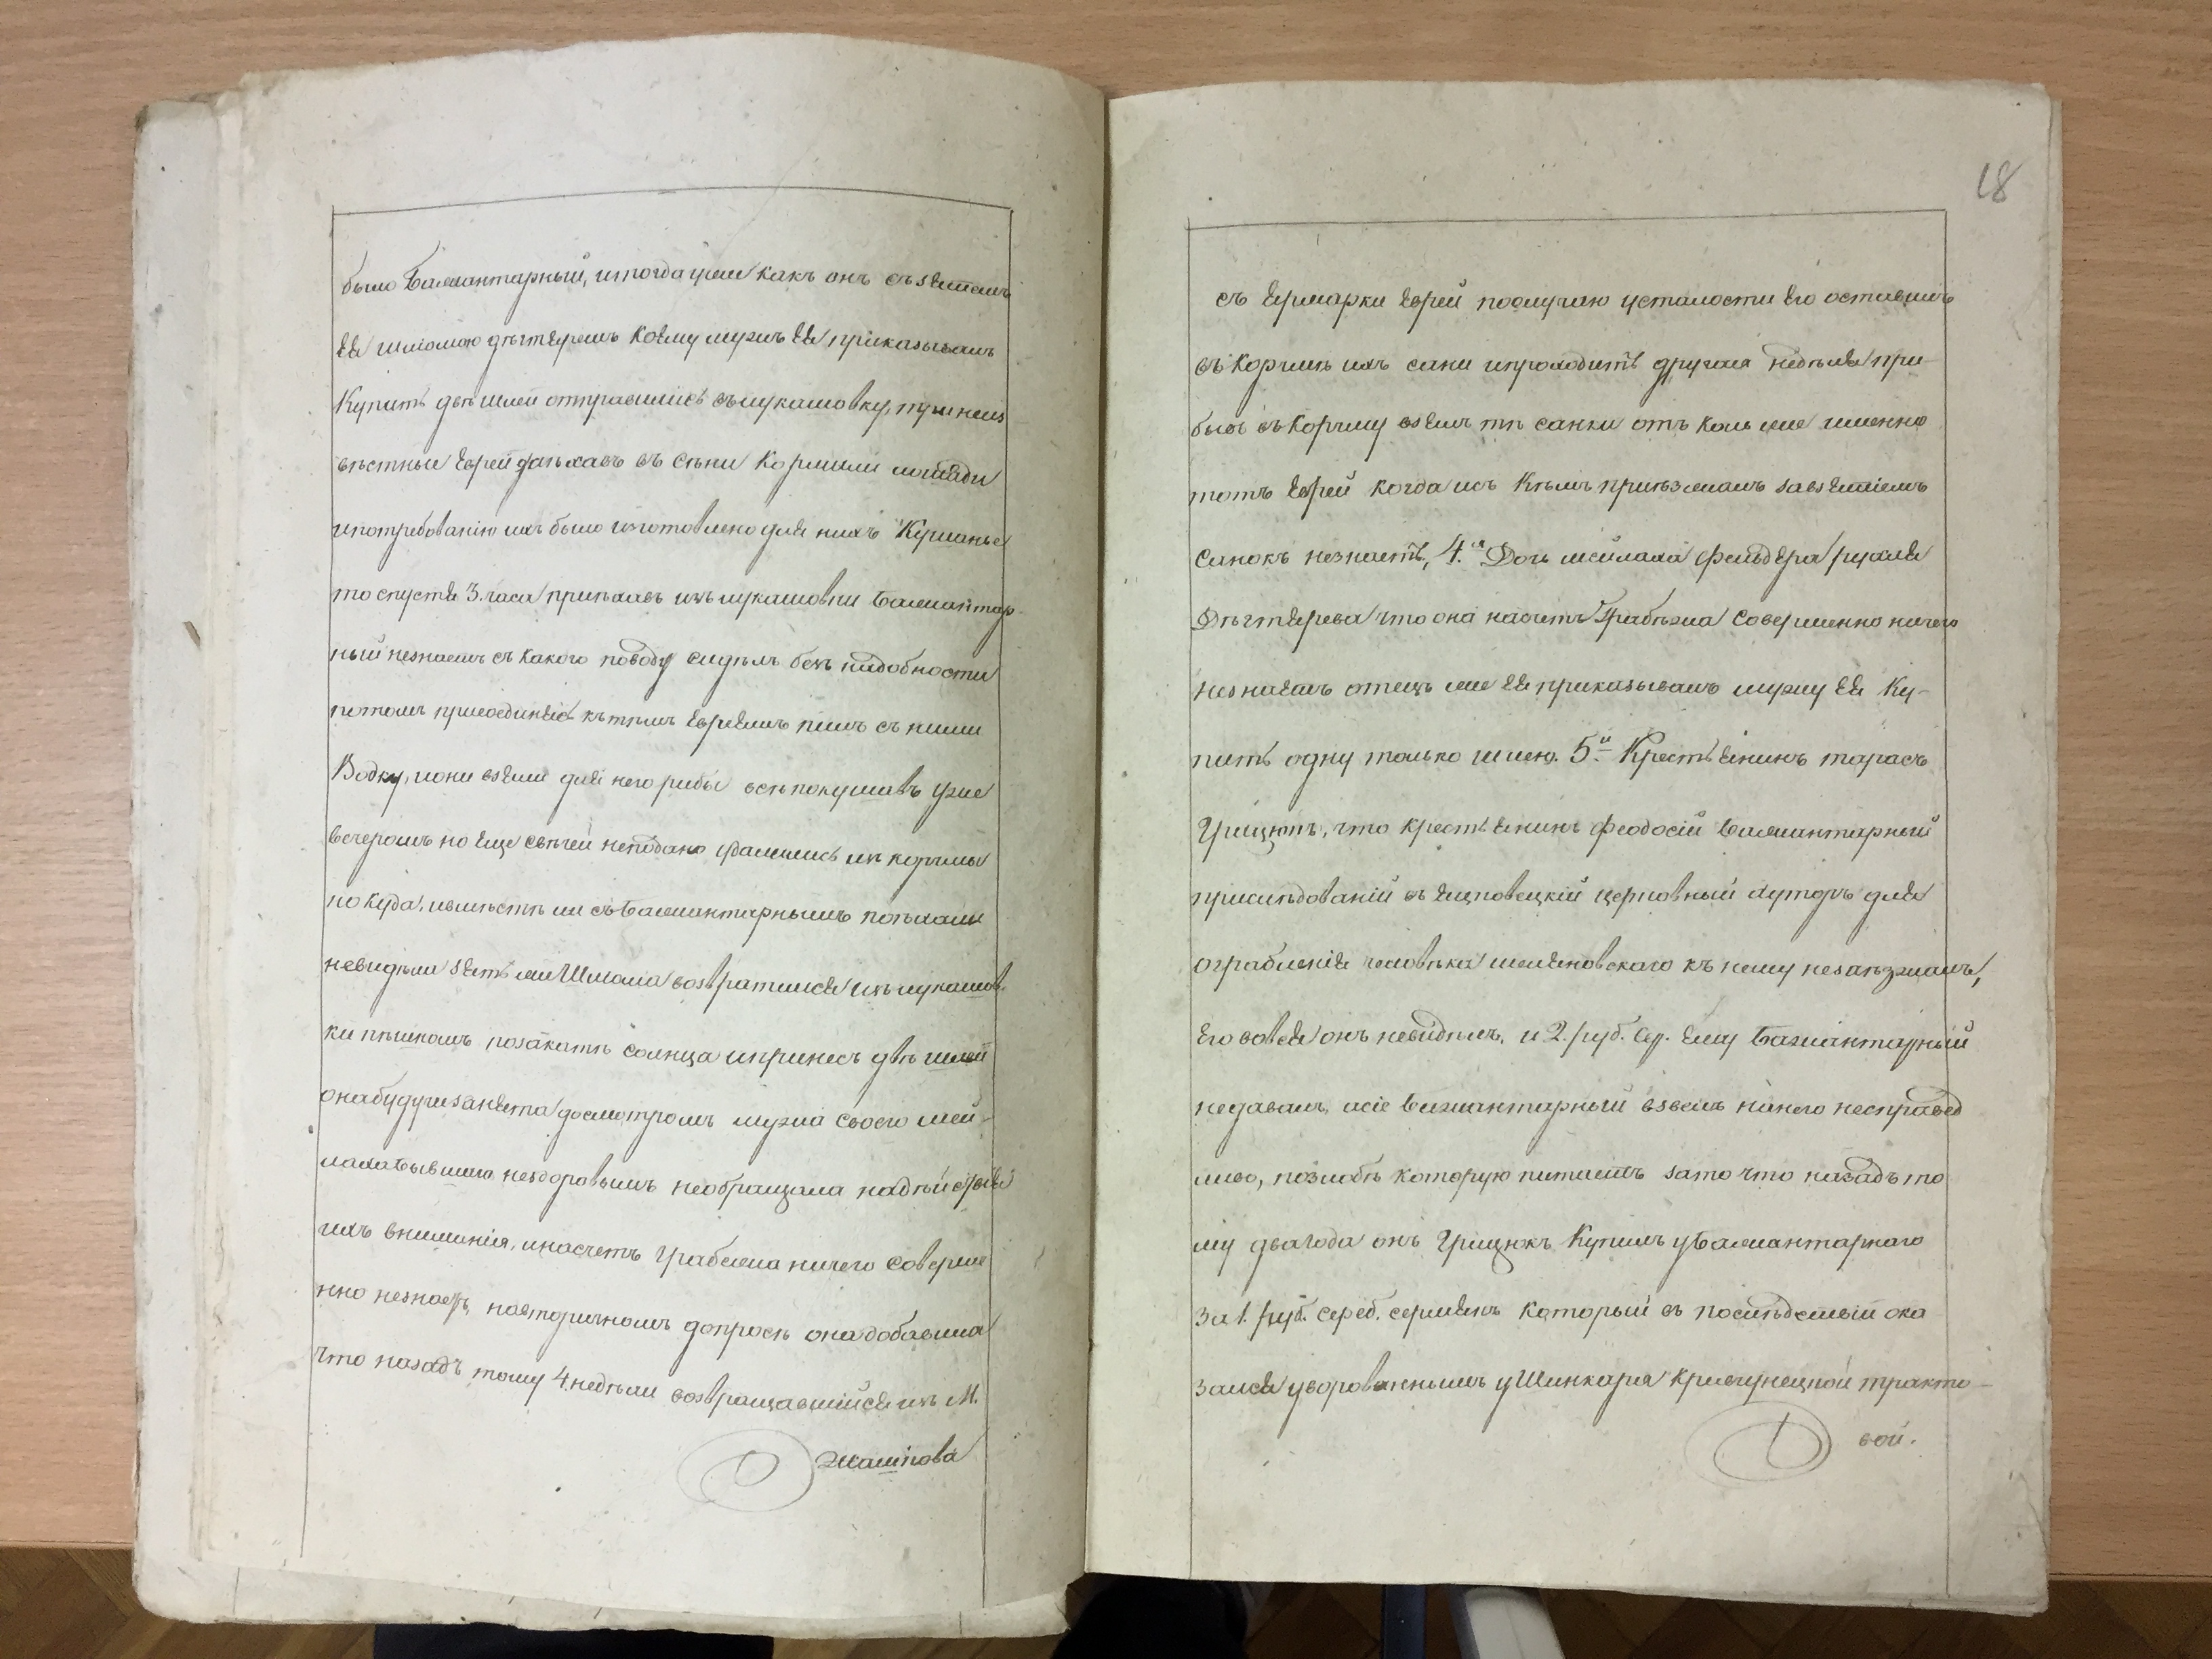 было Балмантарный, итогда уже какъ онъ съ зятемъ
ея шліомою дѣгтяремъ коему мужъ ея приказывалъ
Купить двѣ шлеи отправились въ лукашовку, три неиз
вѣстные Еврей заѣхавъ въ сѣни Кормили лошади
ипотребованію ихъ было изготовлено для нихъ Кушанье
то спустя 3. часа приѣхавъ изъ лукашовки Балмантар-
ный незнаетъ съ какого поводу сидѣлъ безъ надобности
потомъ присоединясь къ тѣмъ Евреямъ пилъ съ ними
Водку, иони взяли для него рибы всѣ покушавъ уже
вечеромъ но Еще свѣчей неподано удалились изъ корчмы
но куда, ивмѣстѣ ли съ Балмантарнымъ поѣхали
невидѣли зять же Шлиома возвратился изъ лукашов-
ки пѣшкомъ позакатѣ солнца ипринесъ двѣ шлеи
она будучи занята досмотромъ мужа своего мей-
лаха бывшаго нездоровымъ необращала надѣйствія
ихъ вниманія, инасчетъ грабежа ничего соверше
нно незнаетъ, навторичномъ допросѣ она добавила
что назадъ тому 4. недѣли возвращавшійся изъ М.
Жашкова
18
съ Ярмарки Еврей послучаю усталости Его оставилъ
въ Корчмѣ ихъ сани ипроходитъ другая недѣля при-
бывъ въ Корчму взялъ тѣ санки отъ коль же именно
тотъ Еврей когда исъ Кѣмъ приѣзжалъ завзятіемъ
Санокъ незнаетъ, 4.я Дочь мейлаха фельдера рухля
Дѣгтярева что она насчетъ Грабѣжа Совершенно ничего
незнаетъ отецъ же Ея приказывалъ мужу Ея Ку-
пить одну только шлею. 5й Крестьянинъ тарасъ
Грицюкъ, что крестьянинъ феодосій Балмантарный
прислѣдованій въ церковный хуторъ для
ограбленія человѣка къ нему незаѣзжалъ,
Его вовся онъ невидѣлъ, и 2. руб. сер. Ему Бажантарный
недавалъ, исіе Бажантарный взвелъ нанего несправед
ливо, позлобѣ которую питаетъ зато что назадъ то
му два года онъ Грицюкъ Купилъ у Балмантарнаго
за 1. руб. сереб. сермягъ который въ послѣдствіи ока
зался уворованнымъ у Шинкаря тракто-
вой.